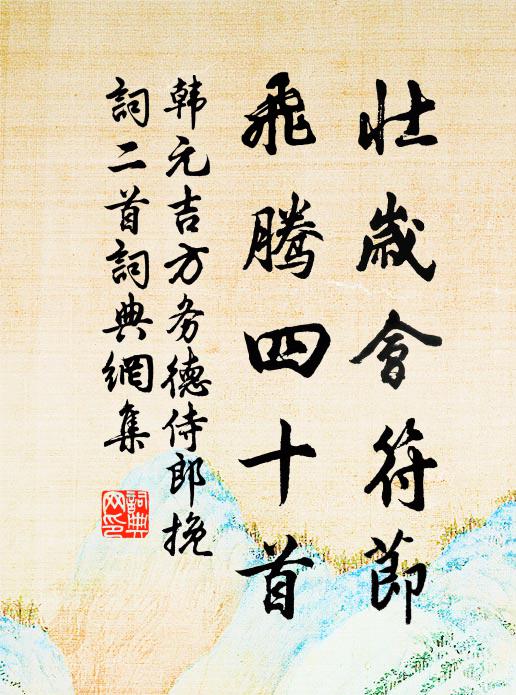 壮歲會符節
飛騰四十首
韩元吉方务德侍郎挽
詞二首詞典網集
詞典
网印